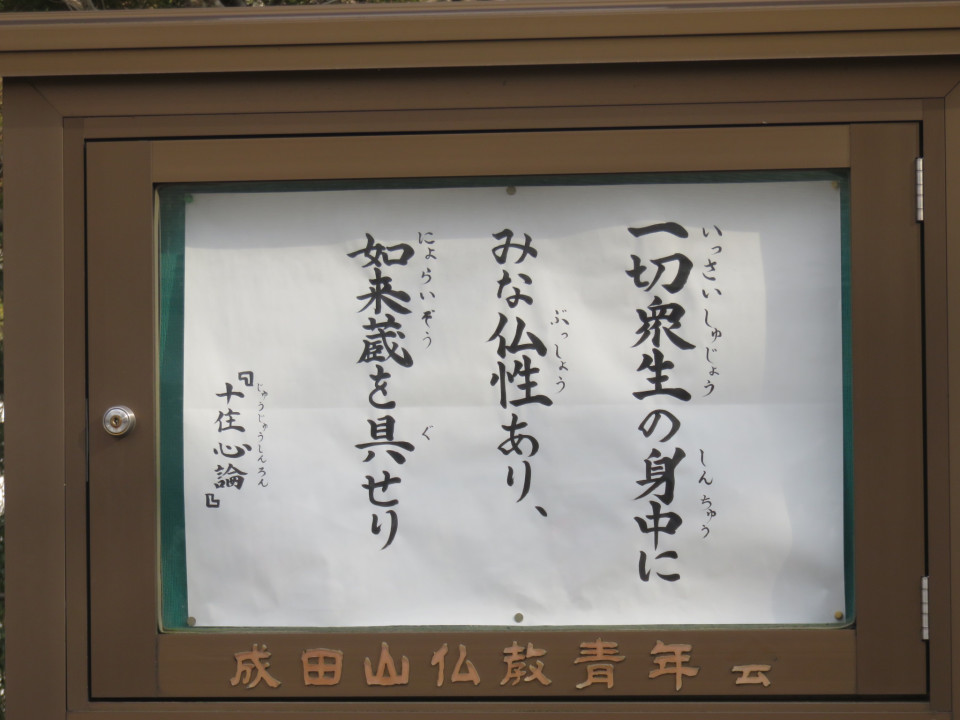 いっさいしゅじょう しんちゅう
一切衆生の身中に
ぶっしょう
みな仏性あり、
にょらいぞう ぐ
如来蔵を具せり
じゅうじゅうしんろん
『十住心論』
成田山仏教青年云